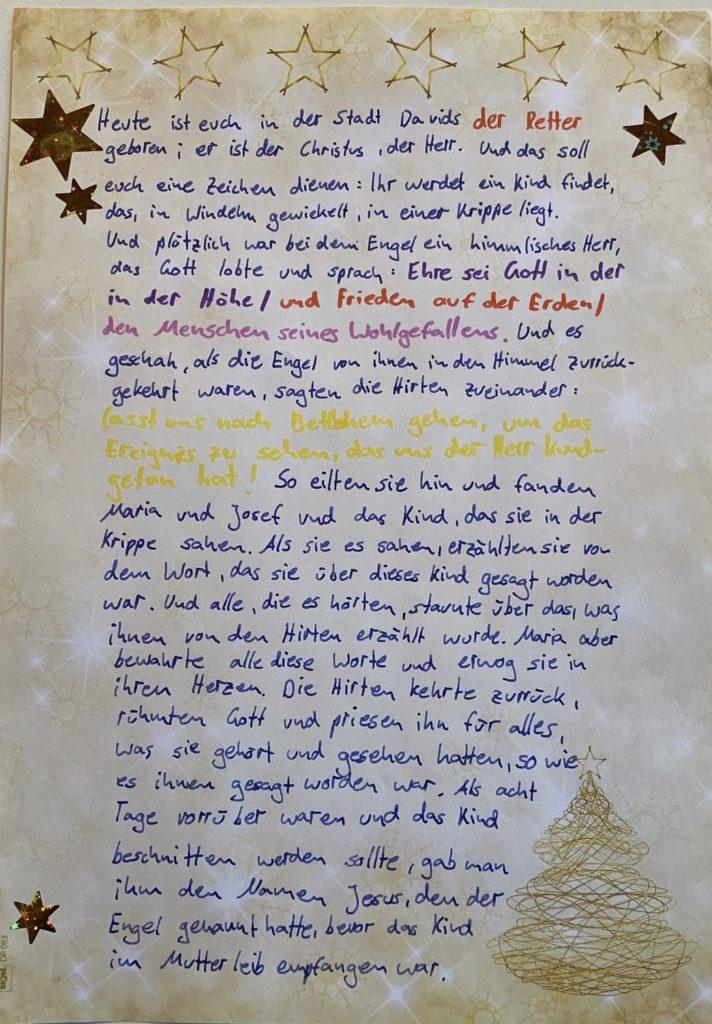 Heute ist euch in der Stadt Davids der Retter
geboren; er ist der Christus, der Herr. Und das soll
euch eine Zeichen dienen: Ihr werdet ein Kind findet,
das, in Windehn gewickelt, in einer Krippe liegt.
Und plötzlich war bei dem Engel ein himmlisches Herr,
das Gott lobte und sprach: Ehre sei Gott in der
in der Höhe/ und Frieden auf der Erden/
den Menschen seines Wohlgefallens. Und es
geschah, als die Engel von ihnen in den Himmel zurrück-
gekehrt waren, sagten die Hirten zueinander:
Lasst uns nach Betlehem gehen, um das
Ereignis zu sehen, das uns der Herr kund-
getan hat! So eilten sie hin und fanden
Maria und Josef und das Kind, das sie in der
Krippe sahen. Als sie es sahen, erzählten sie von
dem Wort, das sie über dieses Kind gesagt worden
war. Und alle, die es hörten, staunte über das, was
ihnen von den Hirten erzählt wurde. Maria aber
bewahrte alle diese Worte und erwog sie in
ihren Herzen. Die Hirten kehrte zurrück,
rühmten Gott und priesen ihn für alles,
was sie gehört und gesehen hatten, so wie
es ihnen gesagt worden war. Als acht
Tage vorrüber waren und das Kind
beschnitten werden sollte, gab man
ihm den Namen Jesus, den der
Engel genannt hatte, bevor das Kind
im Mutterleib empfangen war.
sigel DP 083